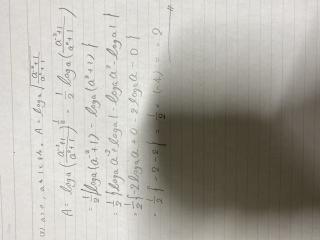 (2). a>0, a≠1のとき. A = log a √(a⁻²+1 / a²+1)
A = log a (a⁻²+1 / a²+1)^(1/2) = 1/2 log a (a⁻²+1 / a²+1)
= 1/2 { log a (a⁻²+1) - log a (a²+1) }
= 1/2 { log a a⁻² + log a 1 - log a a² - log a 1 }
= 1/2 { -2 log a a + 0 - 2 log a a - 0 }
= 1/2 { -2 - 2 } = 1/2 × (-4) = -2